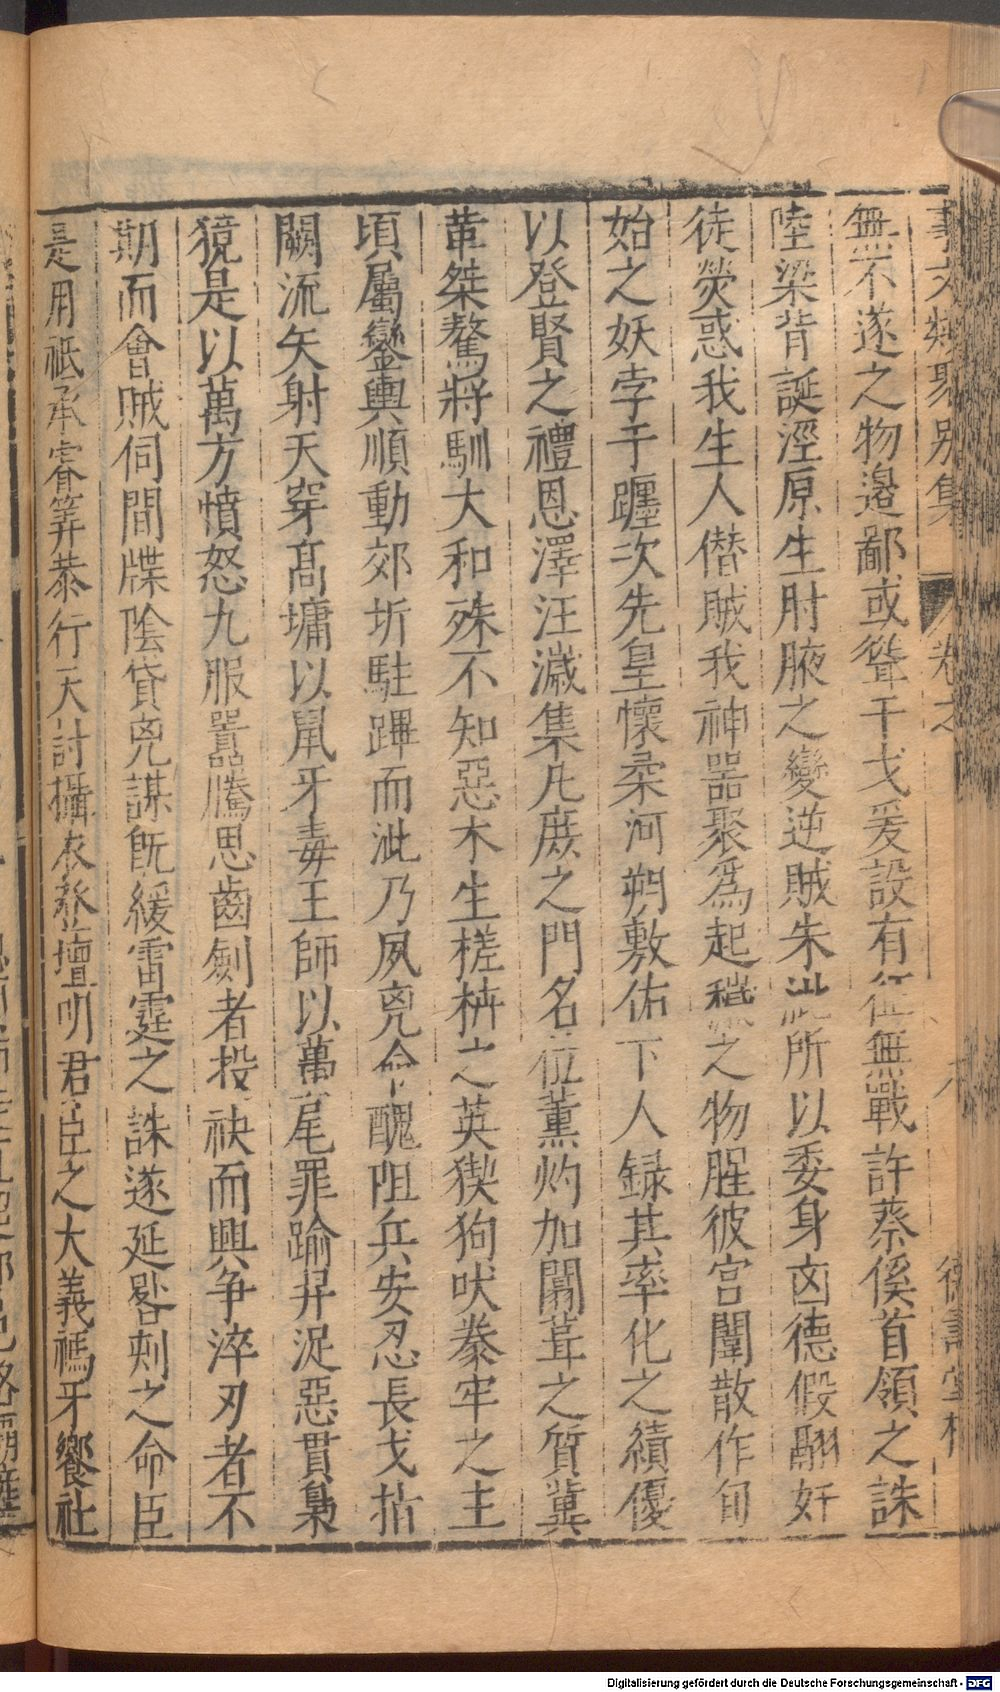 事文類聚別集 卷之 八 德壽堂梓
無不遂之物邉鄙或聳干戈爰設有征無戰許蔡傒首領之誅
陸梁背誕涇原生肘腋之變逆賊朱泚所以委身囪德假翮奸
徒熒惑我生人僭賊我神器聚爲起穢之物腥彼宫闈散作旬
始之妖孛于躔次先皇懷柔河朔敷佑下人録其率化之績優
以登賢之禮恩澤汪濊集凡庶之門名位薰灼加闒茸之質冀
革桀驁將馴大和殊不知惡木生槎枿之英猰狗吠豢牢之主
頃屬鑾輿順動郊圻駐蹕而泚乃夙兇命醜阻兵安忍長戈㧻
闕流矢射天穿髙墉以鼠牙毒王師以蠆尾罪踰羿浞惡貫梟
獍是以萬方憤怒九服囂騰思齒劍者投袂而興争淬刃者不
期而會賊伺間牒陰貸兇謀旣緩雷霆之誅遂延晷刻之命臣
是用祇承睿筭恭行天討攝衣登壇明君臣之大義禡牙饗社
Digitalisierung gefördert durch die Deutsche Forschungsgemeinschaft - DFG